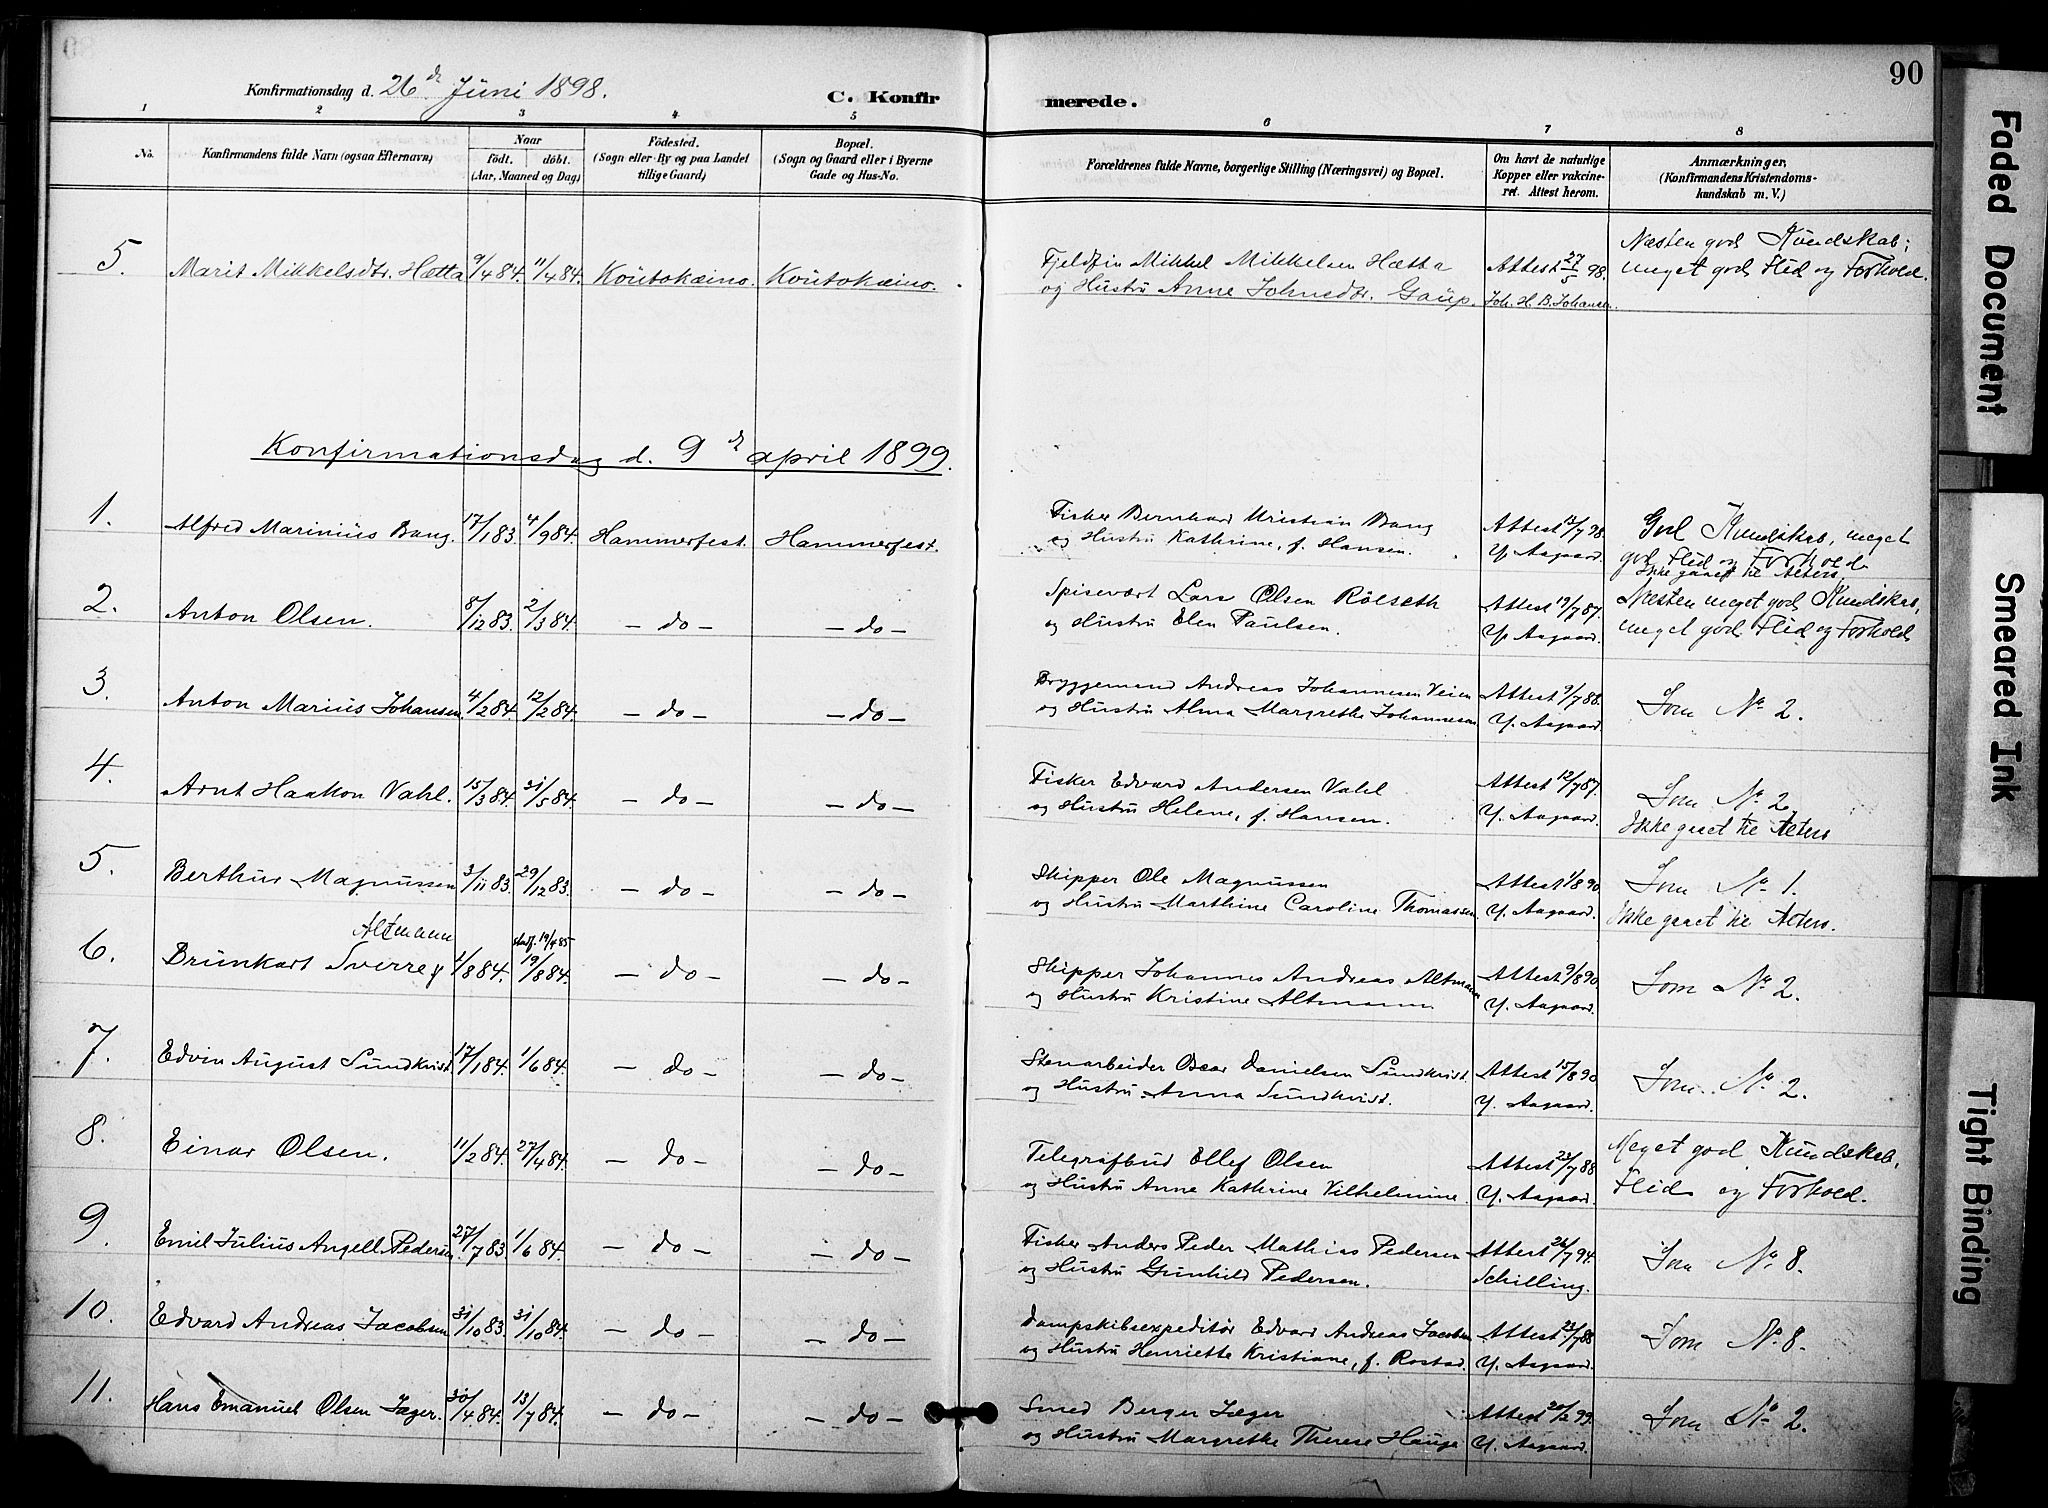 90
Konfirmationsdag d. 26de Juni 1898.
C. Konfirmerede.
1 2 3 4 5 6 7 8
No.
Konfirmandens fulde Navn (ogsaa Efternavn)
Naar
födt. döbt.
(Aar, Maaned og Dag)
Födested.
(Sogn eller By og paa Landet
tillige Gaard)
Bopæl.
(Sogn og Gaard eller i Byerne
Gade og Hus-No.
Forældrenes fulde Navne, borgerlige Stilling (Næringsvei) og Bopæl.
Om havt de naturlige
Kopper eller vakcine-
ret. Attest herom.
Anmærkninger,
(Konfirmandens Kristendoms-
kundskab m. V.)
5. Marit Mikkelsdtr. Hætta 9/4 84. 11/4 84. Koutokæino. Koutokæino.
Fjeldfin Mikkel Mikkelsen Hætta
og Hustru Anne Johnsdtr. Gaup.
Attest 27/5 98.
Joh. H. B. Johansen.
Næsten god Kundskab;
meget god Flid og Forhold.
Konfirmationsdag d. 9de april 1899.
1. Alfred Marinius Bang. 17/1 83. 4/9 84. Hammerfest. Hammerfest.
Fisker Bernhard Kristian Bang
og Hustru Kathrine, f. Hansen.
Attest 12/7 98.
Y. Aagaard.
God Kundskab, meget
god Flid og Forhold
Ikke gaaet til Alters
2. Anton Olsen. 8/12 83. 2/3 84. — do — — do —
Spisevært Lars Olsen Rölseth
og Hustru Elen Paulsen.
Attest 19/7 87.
Y. Aagaard.
Næsten meget god Kundskab,
meget god Flid og Forhold
3. Anton Marius Johansen 4/2 84. 12/2 84. — do — — do —
Bryggemand Andreas Johannesen Veien
og Hustru Alma Margrethe Johannesen
Attest 9/7 88.
Y. Aagaard.
Som No 2.
4. Arnt Haakon Vahl. 15/3 84. 31/5 84. — do — — do —
Fisker Edvard Andersen Vahl
og Hustru Helene, f. Hansen.
Attest 12/7 87.
Y. Aagaard.
Som No 2
Ikke gaaet til Alters
5. Berthur Magnussen 3/11 83. 29/12 83. — do — — do —
Skipper Ole Magnussen
og Hustru Marthine Caroline Thomassen.
Attest 1/8 90
Y. Aagaard.
Som No 1.
Ikke gaaet til Alters.
Altmann
6. Brunkart Sverre 1/8 84. stadf. 19/4 85 19/8 84. — do — — do —
Skipper Johannes Andreas Altmann
og Hustru Kristine Altmann
Attest 9/8 90
Y. Aagaard.
Som No 2.
7. Edvin August Sundkvist. 17/1 84. 1/6 84. — do — — do —
Stenarbeider Oscar Danielsen Sundkvist.
og Hustru Anna Sundkvist.
Attest 15/8 90
Y. Aagaard.
Som No 2.
8. Einar Olsen. 11/2 84. 27/4 84. — do — — do —
Telegrafbud Ellef Olsen
og Hustru Anne Kathrine Vilhelmine.
Attest 23/7 88
Y. Aagaard.
Meget god Kundskab,
Flid og Forhold.
9. Emil Julius Angell Pedersen. 27/7 83. 1/6 84. — do — — do —
Fisker Anders Peder Mathias Pedersen
og Hustru Gunhild Pedersen.
Attest 26/7 94.
Schilling.
Som No 8.
10. Edvard Andreas Jacobsen 31/10 83. 31/10 84. — do — — do —
Dampskibsexpeditör Edvard Andreas Jacobsen
og Hustru Henriette Kristiane, f. Rostad.
Attest 23/7 88
Y. Aagaard.
Som No 8.
11. Hans Emanuel Olsen Jæger. 30/4 84. 13/7 84. — do — — do —
Smed Berger Jæger
og Hustru Margrethe Therese Hauge
Attest 20/2 99.
Y. Aagaard.
Som No 2.
Faded Document
Smeared Ink
Tight Binding